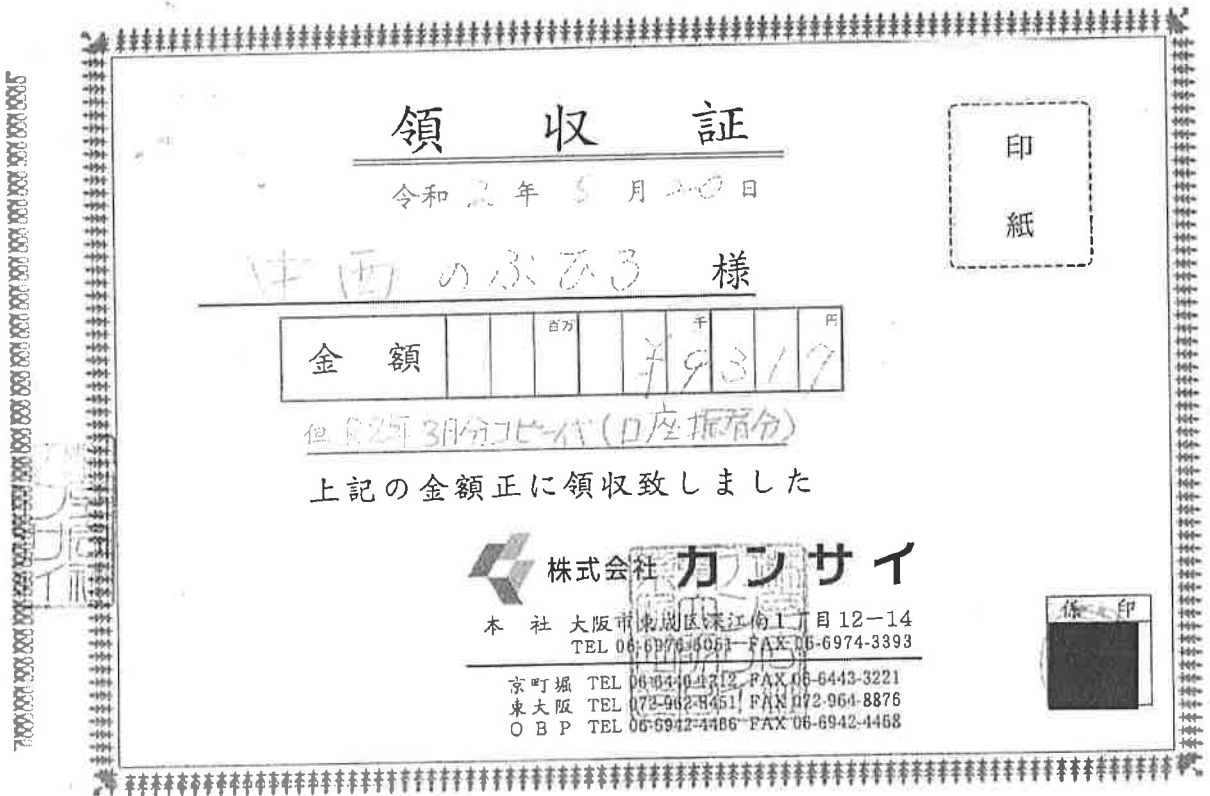 領収証
令和2年5月20日
印紙
中西のぶひろ 様
金額 百万 千 円 ¥9317
但 R2年3月分コピー代(口座振替分)
上記の金額正に領収致しました
株式会社 カンサイ
本社 大阪市東成区深江南1丁目12-14
TEL 06-6976-5051 FAX 06-6974-3393
京町堀 TEL 06-6449-1212 FAX 06-6443-3221
東大阪 TEL 072-962-8451 FAX 072-964-8876
OBP TEL 06-6942-4466 FAX 06-6942-4468
係印